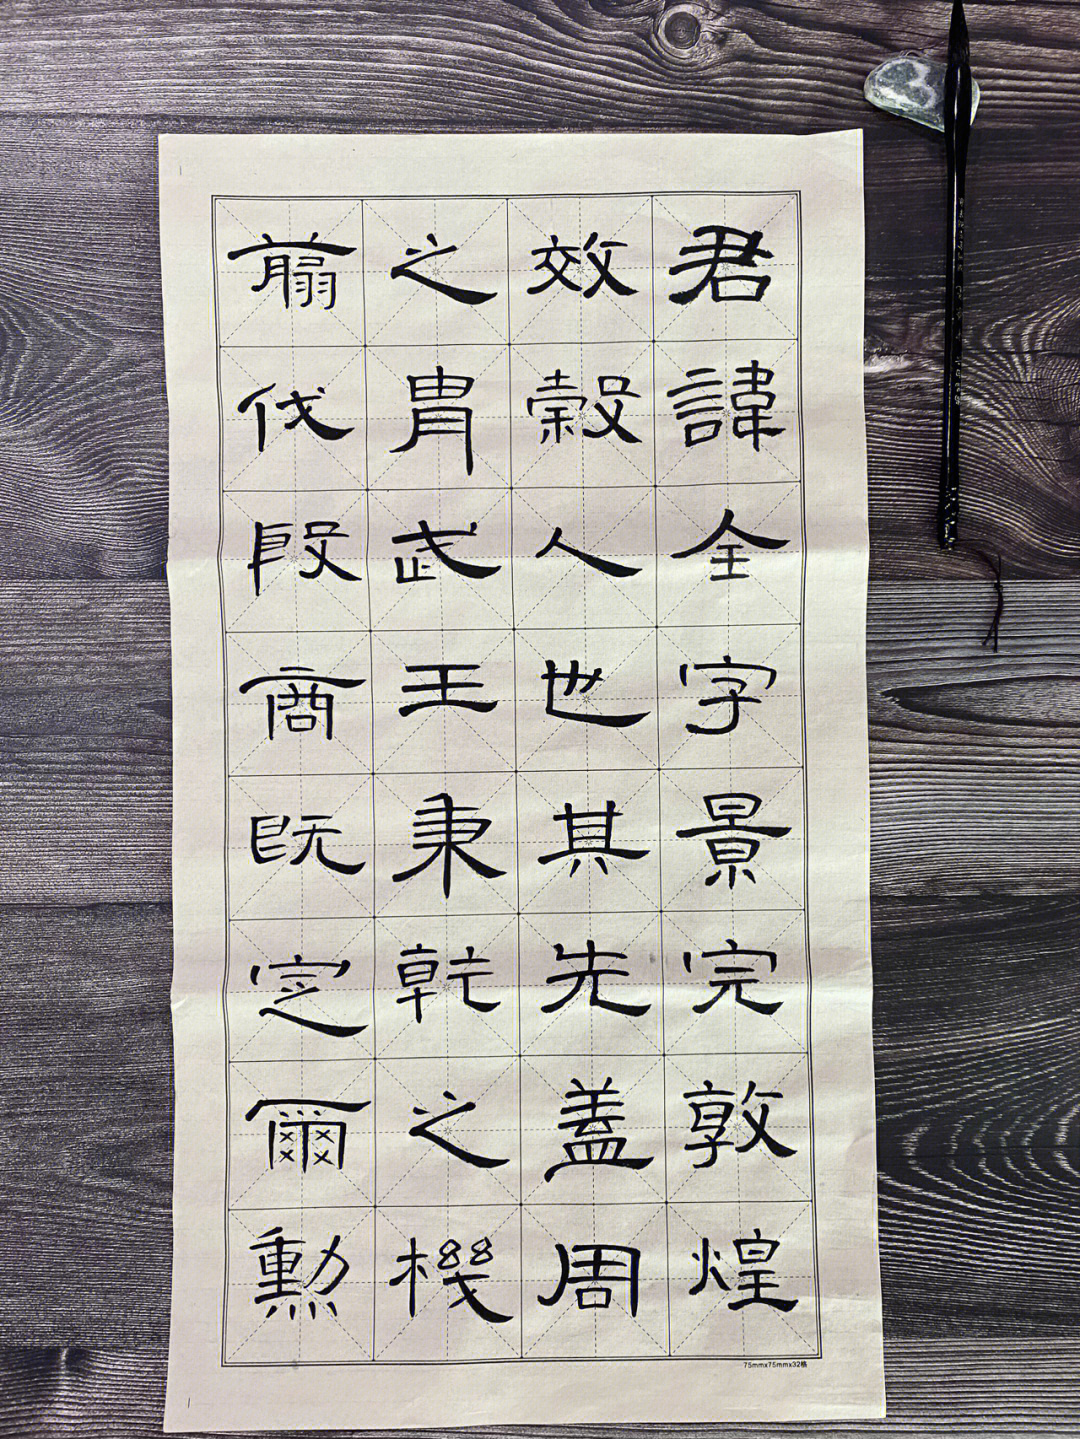 君諱全字景完敦煌
效穀人世其先蓋周
之胄武王秉乾之機
翦伐殷商既定爾勳
75mmx75mmx32格